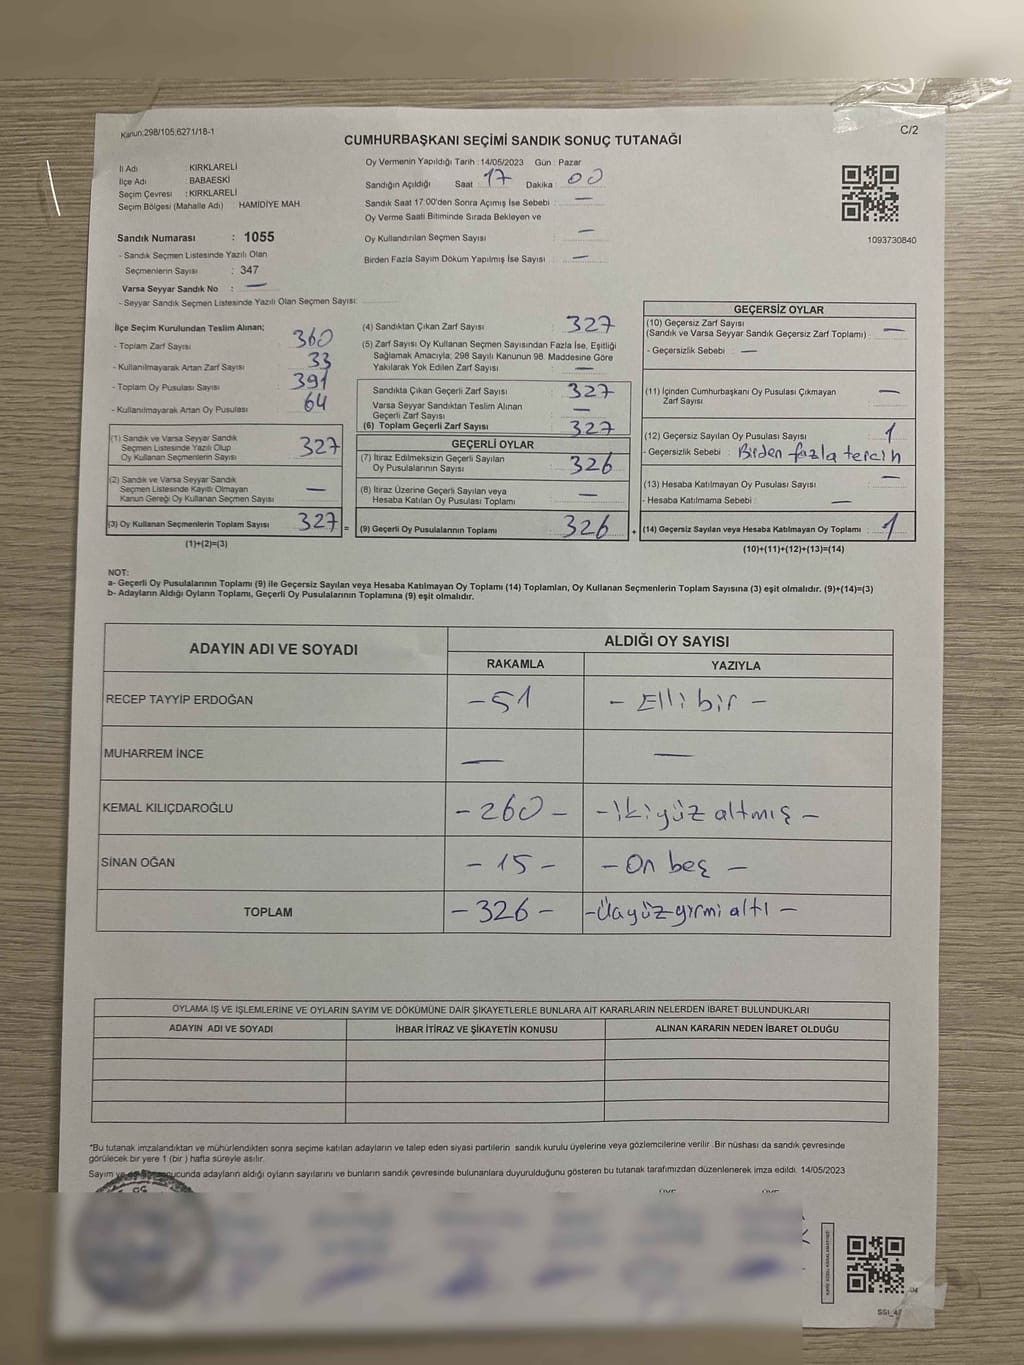 Kanun:298/105;6271/18-1
C/2
CUMHURBAŞKANI SEÇİMİ SANDIK SONUÇ TUTANAĞI
İli Adı : KIRKLARELİ
İlçe Adı : BABAESKİ
Seçim Çevresi : KIRKLARELİ
Seçim Bölgesi (Mahalle Adı) : HAMİDİYE MAH.
Sandık Numarası : 1055
- Sandık Seçmen Listesinde Yazılı Olan
Seçmenlerin Sayısı : 347
Varsa Seyyar Sandık No : —
- Seyyar Sandık Seçmen Listesinde Yazılı Olan Seçmen Sayısı:
Oy Vermenin Yapıldığı Tarih : 14/05/2023 Gün : Pazar
Sandığın Açıldığı Saat : 17 Dakika : 00
Sandık Saat 17:00'den Sonra Açımış İse Sebebi : —
Oy Verme Saati Bitiminde Sırada Bekleyen ve
Oy Kullandırılan Seçmen Sayısı : —
Birden Fazla Sayım Döküm Yapılmış İse Sayısı : —
1093730840
İlçe Seçim Kurulundan Teslim Alınan;
- Toplam Zarf Sayısı : 360
- Kullanılmayarak Artan Zarf Sayısı : 33
- Toplam Oy Pusulası Sayısı : 391
- Kullanılmayarak Artan Oy Pusulası : 64
(1) Sandık ve Varsa Seyyar Sandık
Seçmen Listesinde Yazılı Olup
Oy Kullanan Seçmenlerin Sayısı : 327
(2) Sandık ve Varsa Seyyar Sandık
Seçmen Listesinde Kayıtlı Olmayan
Kanun Gereği Oy Kullanan Seçmen Sayısı : —
(3) Oy Kullanan Seçmenlerin Toplam Sayısı : 327 =
(1)+(2)=(3)
(4) Sandıktan Çıkan Zarf Sayısı : 327
(5) Zarf Sayısı Oy Kullanan Seçmen Sayısından Fazla İse, Eşitliği
Sağlamak Amacıyla; 298 Sayılı Kanunun 98. Maddesine Göre
Yakılarak Yok Edilen Zarf Sayısı : —
Sandıkta Çıkan Geçerli Zarf Sayısı : 327
Varsa Seyyar Sandıktan Teslim Alınan
Geçerli Zarf Sayısı : —
(6) Toplam Geçerli Zarf Sayısı : 327
GEÇERLİ OYLAR
(7) İtiraz Edilmeksizin Geçerli Sayılan
Oy Pusulalarının Sayısı : 326
(8) İtiraz Üzerine Geçerli Sayılan veya
Hesaba Katılan Oy Pusulası Toplamı : —
(9) Geçerli Oy Pusulalarının Toplamı : 326 +
GEÇERSİZ OYLAR
(10) Geçersiz Zarf Sayısı
(Sandık ve Varsa Seyyar Sandık Geçersiz Zarf Toplamı) : —
- Geçersizlik Sebebi : —
(11) İçinden Cumhurbaşkanı Oy Pusulası Çıkmayan
Zarf Sayısı : —
(12) Geçersiz Sayılan Oy Pusulası Sayısı : 1
- Geçersizlik Sebebi : Birden fazla tercih
(13) Hesaba Katılmayan Oy Pusulası Sayısı : —
- Hesaba Katılmama Sebebi : —
(14) Geçersiz Sayılan veya Hesaba Katılmayan Oy Toplamı : 1
(10)+(11)+(12)+(13)=(14)
NOT:
a- Geçerli Oy Pusulalarının Toplamı (9) ile Geçersiz Sayılan veya Hesaba Katılmayan Oy Toplamı (14) Toplamları, Oy Kullanan Seçmenlerin Toplam Sayısına (3) eşit olmalıdır. (9)+(14)=(3)
b- Adayların Aldığı Oyların Toplamı, Geçerli Oy Pusulalarının Toplamına (9) eşit olmalıdır.
ADAYIN ADI VE SOYADI
ALDIĞI OY SAYISI
RAKAMLA YAZIYLA
RECEP TAYYİP ERDOĞAN -51 - Elli bir -
MUHARREM İNCE — —
KEMAL KILIÇDAROĞLU -260- -ikiyüz altmış -
SİNAN OĞAN -15- -On beş -
TOPLAM -326- -Üçyüzyirmi altı -
OYLAMA İŞ VE İŞLEMLERİNE VE OYLARIN SAYIM VE DÖKÜMÜNE DAİR ŞİKAYETLERLE BUNLARA AİT KARARLARIN NELERDEN İBARET BULUNDUKLARI
ADAYIN ADI VE SOYADI İHBAR İTİRAZ VE ŞİKAYETİN KONUSU ALINAN KARARIN NEDEN İBARET OLDUĞU
*Bu tutanak imzalandıktan ve mühürlendikten sonra seçime katılan adayların ve talep eden siyasi partilerin sandık kurulu üyelerine veya gözlemcilerine verilir. Bir nüshası da sandık çevresinde
görülecek bir yere 1 (bir) hafta süreyle asılır.
Sayım ve sonucunda adayların aldığı oyların sayılarını ve bunların sandık çevresinde bulunanlara duyurulduğunu gösteren bu tutanak tarafımızdan düzenlenerek imza edildi. 14/05/2023